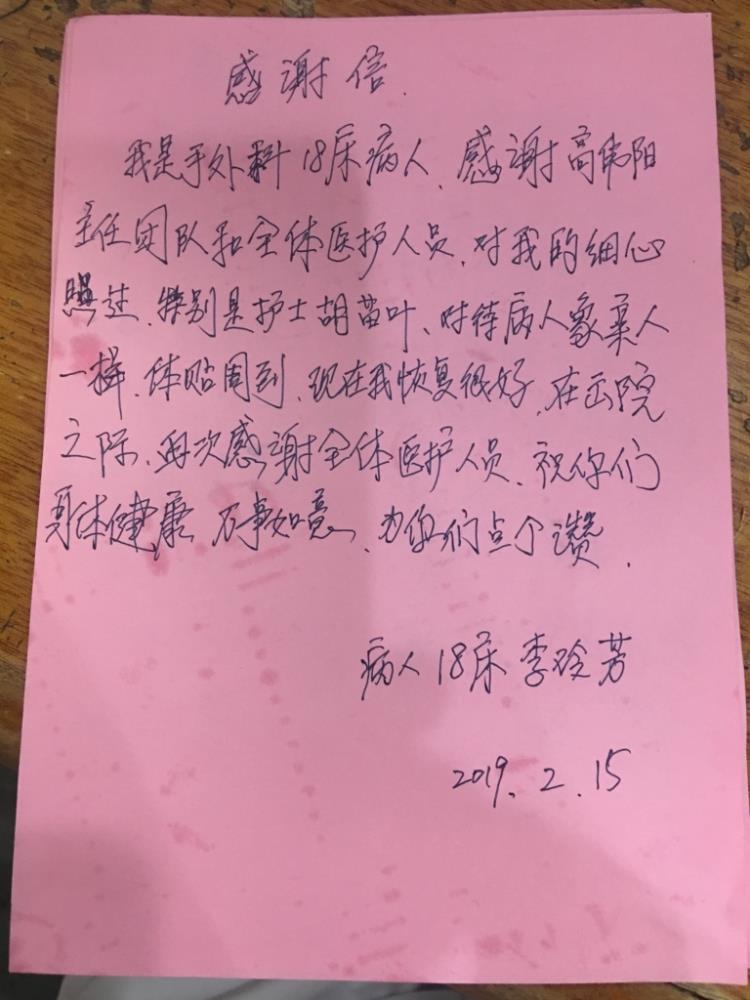 感谢信.
我是手外科18床病人、感谢高伟阳
主任团队和全体医护人员、对我的细心
照过、特别是护士胡苗叶、对待病人象亲人
一样、体贴周到、现在我恢复很好、在出院
之际、再次感谢全体医护人员、祝你们
身体健康 万事如意、为你们点个讚.
病人18床 李玲芳
2019.2.15